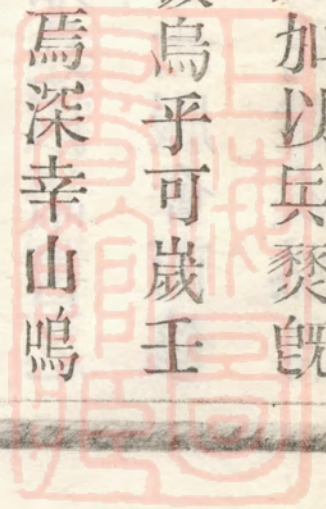 加以兵燹旣
烏乎可歲壬
焉深幸山嗚